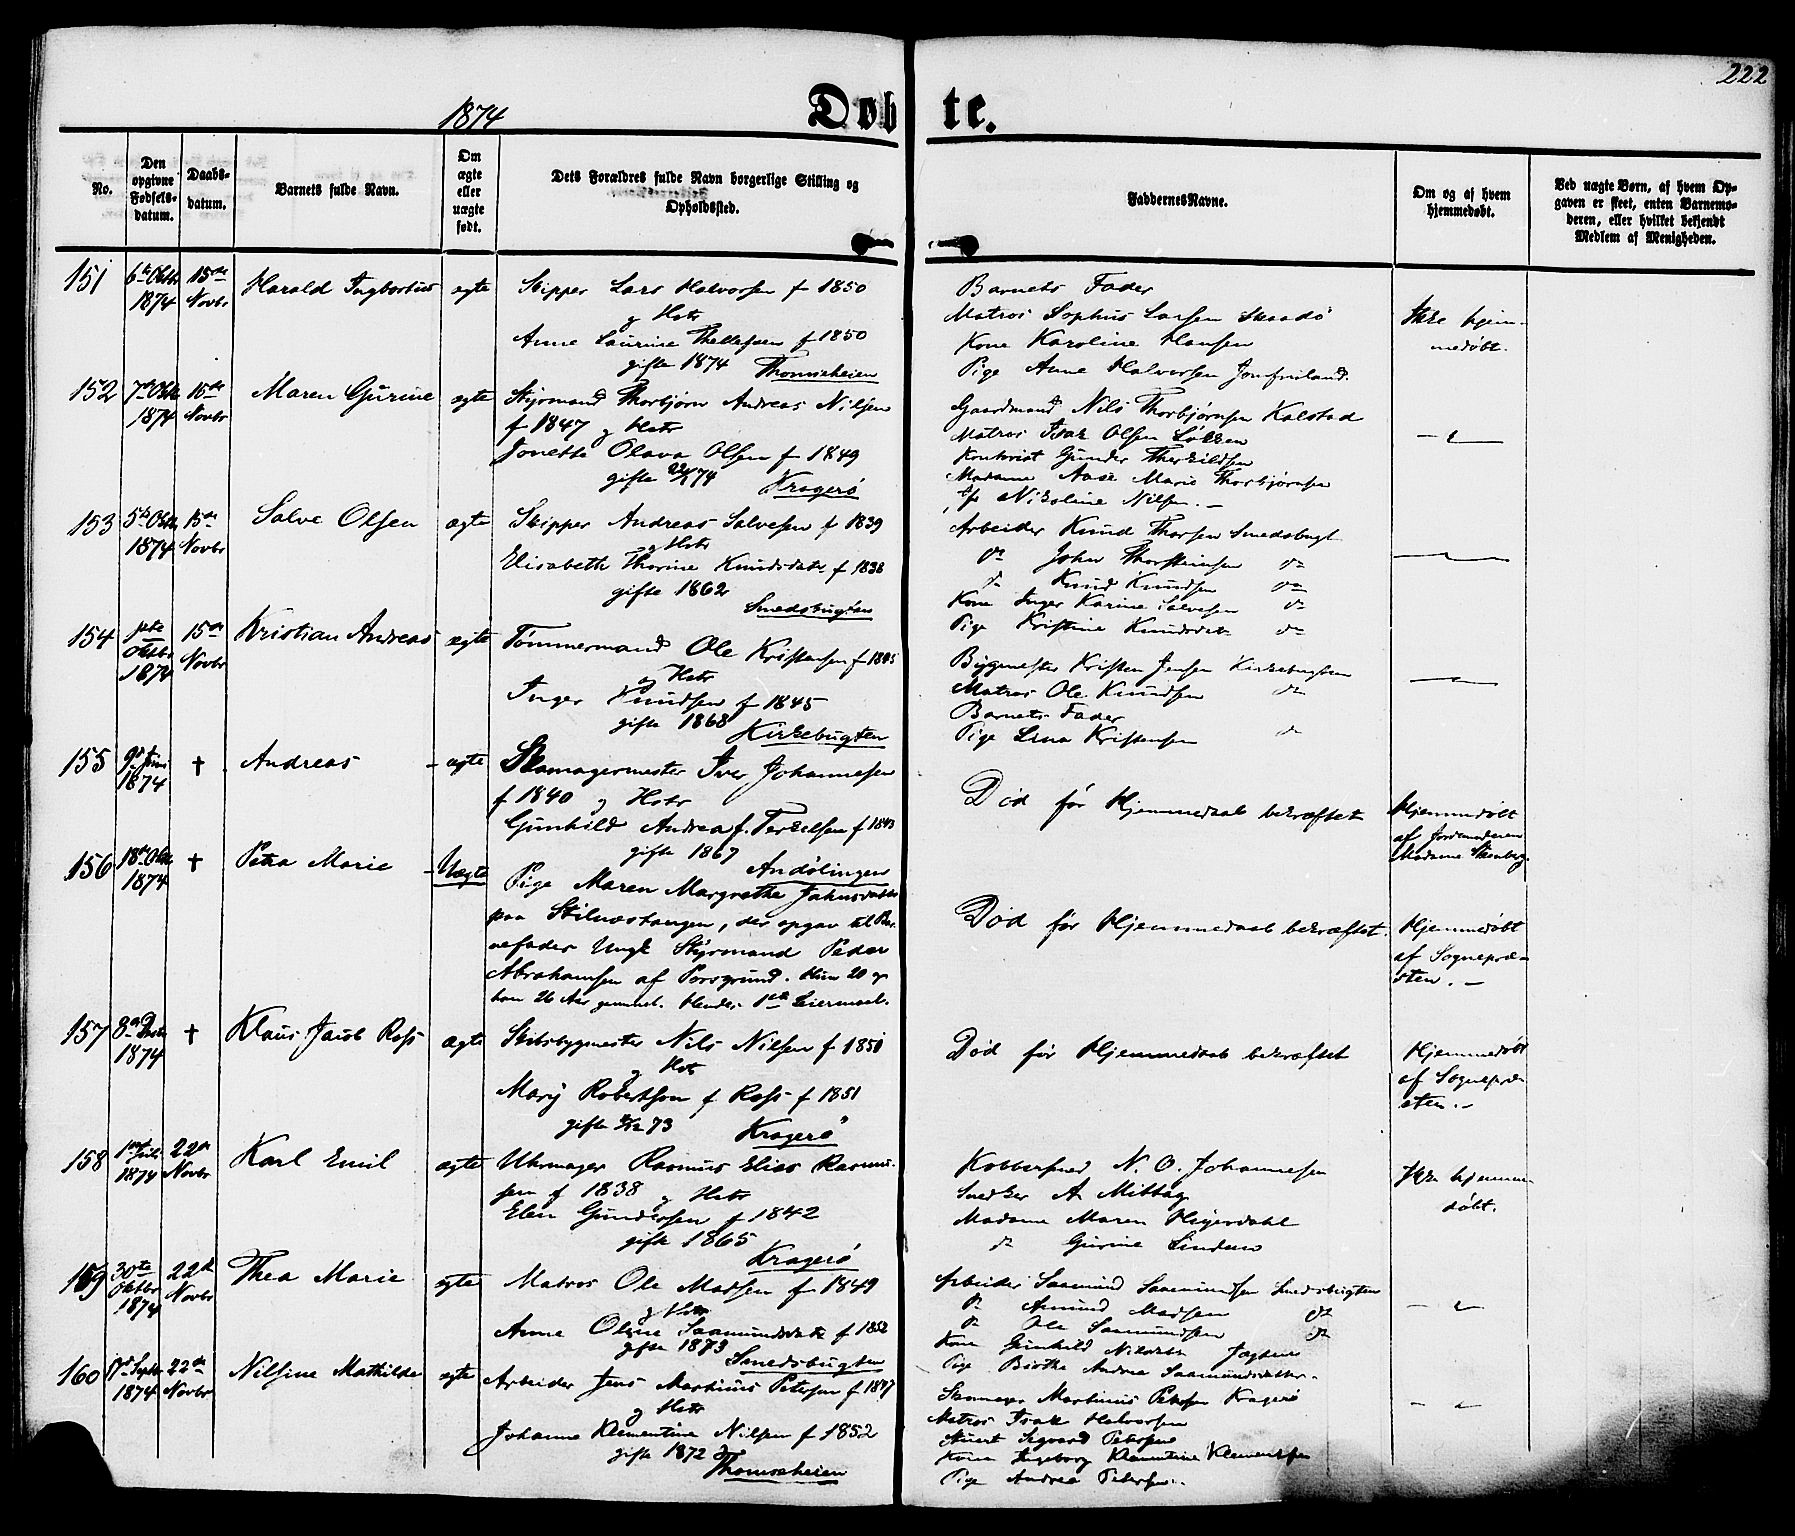 222
1874
Døbte.
No.
Den opgivne Fødsels-datum.
Daabs-datum.
Barnets fulde Navn.
Om ægte eller uægte født.
Dets Forældres fulde Navn borgerlige Stilling og Opholdssted.
Faddernes Navne.
Om og af hvem hjemmedøbt.
Ved uægte Børn, af hvem Opgaven er skeet, enten Barnemoderen, eller hvilket bekjendt Medlem af Menigheden.
151 6te Oktbr 1874 15de Novbr Harald Ingbortius ægte
Skipper Lars Halvorsen f 1850
og Hstr
Anne Laurine Thellefsen f 1850
gifte 1874 Thomseheien
Barnets Fader
Matros Sophus Larsen Skaadø
Kone Karoline Hansen
Pige Anne Halvorsen Jomfruland.
Ikke hjemmedøbt.
152 7de Oktbr 1874 15de Novbr Maren Gurine ægte
Styrmand Thorbjørn Andreas Nilsen
f 1847 og Hstr
Jonette Olava Olsen f 1849
gifte 74 Kragerø
Gaardmand Nils Thorbjørnsen Kalstad
Matros Isak Olsen Løkken
Kontorist Gunder Therkildsen
Madame Aase Marie Thorbjørnsen
Nikoline Nilsen. -
153 5te Oktbr 1874 15de Novbr Salve Olsen ægte
Skipper Andreas Salvesen f 1839
og Hstr
Elisabeth Thorine Knudsdatr f 1838
gifte 1862
Smedsbugten
Arbeider Knud Thorsen Smedsbugt
do John Thorsteinsen do
do Knud Knudsen do
Kone Inger Karine Salvesen do
Pige Kristine Knudsdatr do
154 1ste Oktbr 1874 15de Novbr Kristian Andreas ægte
Tømmermand Ole Kristensen f 1845
og Hstr
Inger Knudsen f 1845
gifte 1868 Kirkebugten
Bygmester Kristen Jensen Kirkebugten
Matros Ole Knudsen do
Barnets Fader
Pige Lena Kristensen do
155 9de Juni 1874 † Andreas - ægte
Skomagermester Iver Johannesen
f 1840 og Hstr
Gunhild Andrea f. Terkelsen f 1843
gifte 1867
Andølingen
Død før Hjemmedaab bekræftet
Hjemmedøbt
af Jordemoderen
Madame Stenberg
156 18de Oktbr 1874 † Petra Marie - Uægte
Pige Maren Margrethe Jahnsdatter
paa Stilnestangen, der opgav til Bar-
nefader Ungk Styrmand Peder
Abrahamsen af Porsgrund. Hun 20 og
han 26 Aar gammel. Hendes 1ste Leiermaal.
Død før Hjemmedaab bekræftet.
Hjemmedøbt
af Sognepræ-
sten. -
157 1874 † Klaus Jacob Ross ægte
Skibsbygmester Nils Nilsen f 1850
og Hstr
Mary Robertson f Ross f 1851
gifte 73 Kragerø
Død før Hjemmedaab bekræftet
Hjemmedøbt
af Sognepræ-
sten. -
158 1ste Juli 1874 22de Novbr Karl Emil ægte
Uhrmager Rasmus Elias Rasmus-
sen f 1838 og Hstr
Elen Gundersen f 1842
gifte 1865
Kragerø
Kobbersmed N. O. Johannesen
Snedker A Mittag
Madame Maren Heyerdahl
do Gurine Lindem
Ikke hjemme-
døbt.
159 30te Oktbr 1874 22de Novbr Thea Marie ægte
Matros Ole Madsen f 1849
og Hstr
Anne Oline Saamundsdatr f 1852
gifte 1873
Smedsbugten
Arbeider Saamund Saamundsen Smedsbugten
do Amund Madsen do
do Ole Saamundsen do
Kone Gunhild Nilsdatr
Pige Birthe Andrea Saamundsdatter.
160 Septbr 1874 22de Novbr Nilsine Mathilde ægte
Arbeider Jens Martinus Petersen f 1847
og Hstr
Johanne Klementine Nilsen f 1852
gifte 1872
Thomseheien
Martinus Petersen Kragerø
Matros Isak Halvorsen
Stuert Sigvard Petersen
Kone Ingeborg Klementine Klementsen
Pige Andrea Petersen.